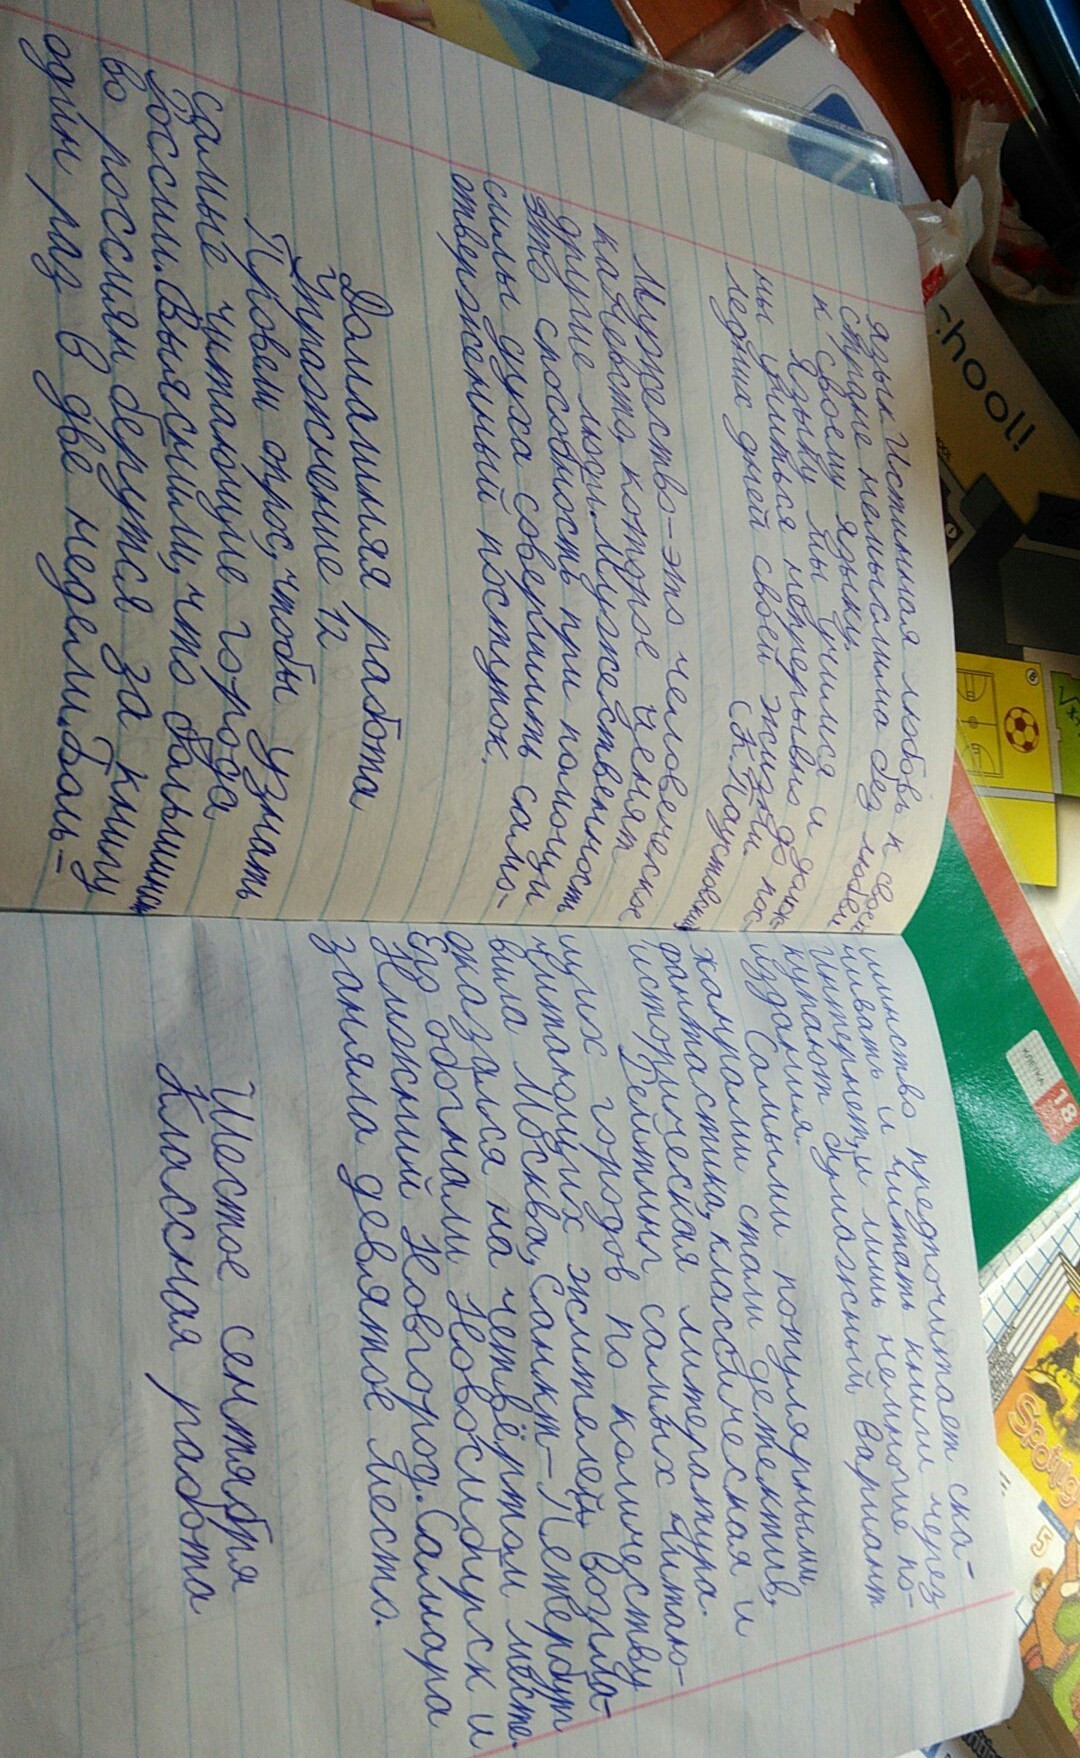 язык. Истинная любовь к своей
стране немыслима без любви
к своему языку.
Языку мы учимся и долж-
ны учиться непрерывно до пос-
ледних дней своей жизни.
(К. Паустовский)
Мужество – это человеческое
качество, которое ценят
другие люди. Мужественность
это способность при помощи
силы духа совершить само-
отверженный поступок.
Домашняя работа
Упражнение 12
Провели опрос, чтобы узнать
самые читающие города
России. Выяснили, что большинст
во россиян берутся за книгу
один раз в две недели. Боль-
шинство предпочитает ска-
чивать и читать книги через
интернет, и лишь немногие по-
купают бумажный вариант
издания.
Самыми популярными
жанрами стали детектив,
фантастика, классическая и
историческая литература.
Рейтинг самых читаю-
щих городов по количеству
читающих жителей возгла-
вила Москва, Санкт-Петербург
оказался на четвёртом месте.
Его обогнали Новосибирск и
Нижний Новгород. Самара
заняла девятое место.
Шестое сентября
Классная работа
chool!
КЛЕТКА
18
Spotlig
5